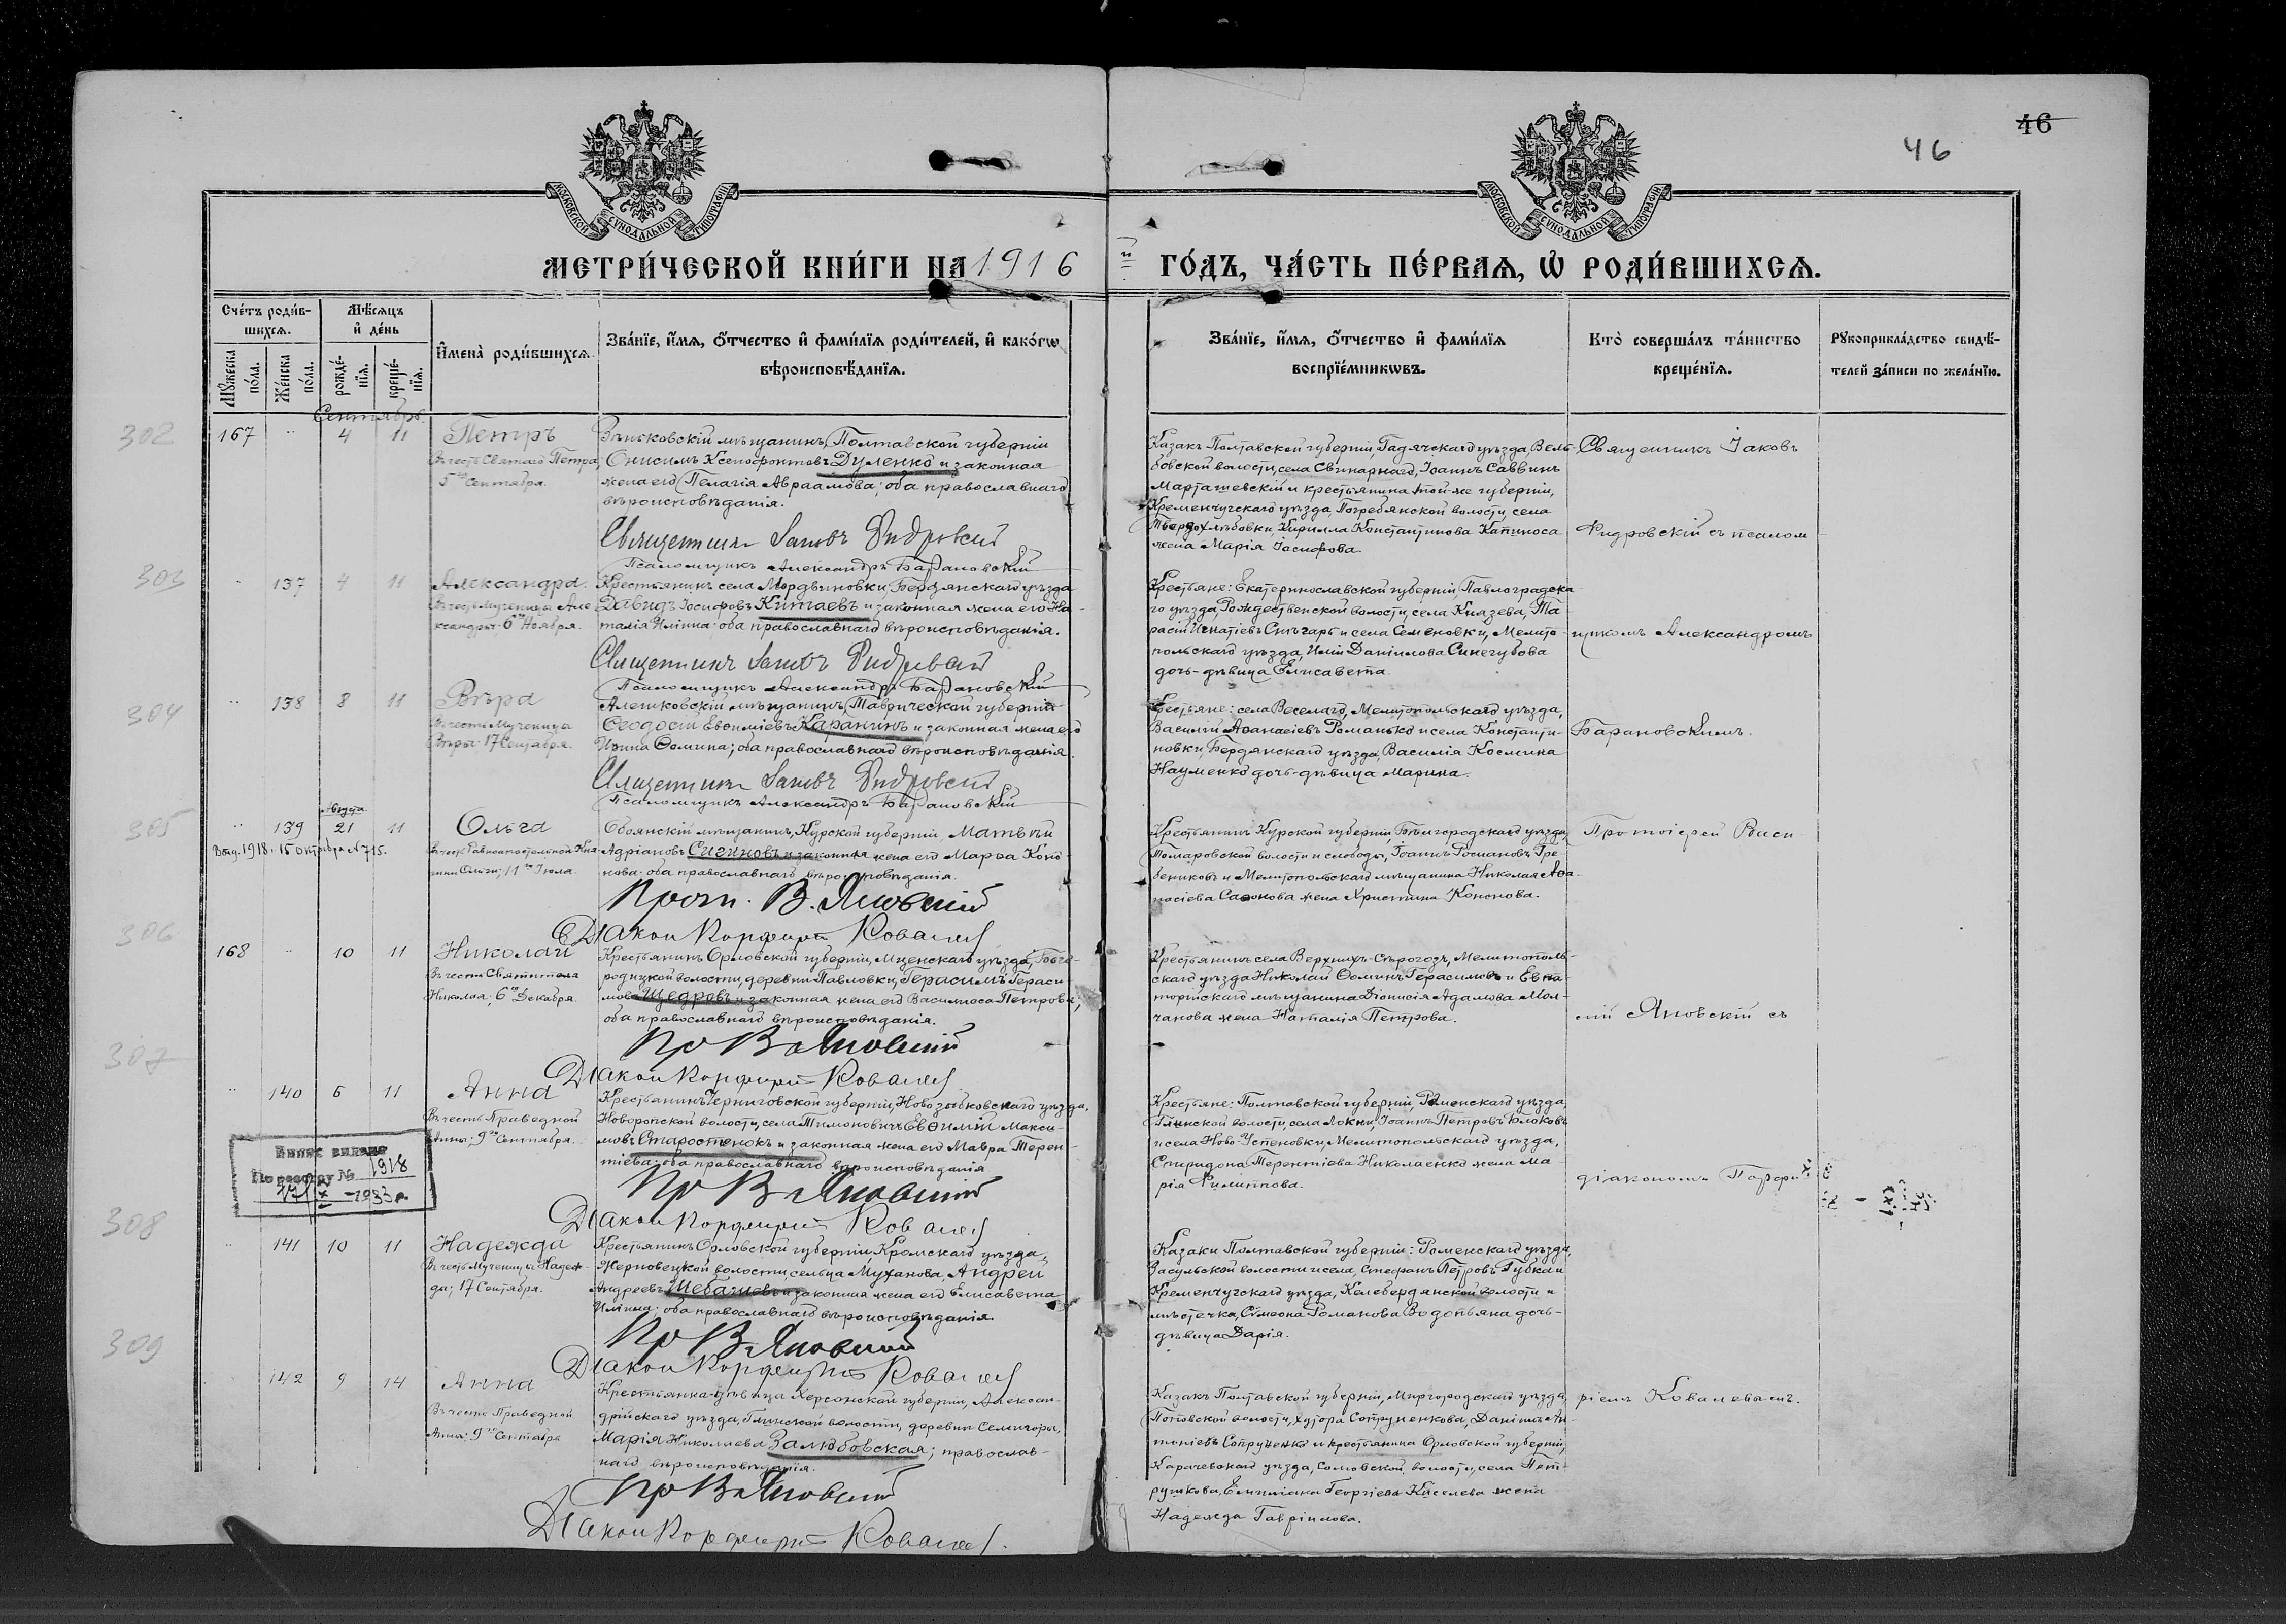 46
46
МОСКОВСКОЙ СѴНОДАЛЬНОЙ ТИПОГРАФІИ
МОСКОВСКОЙ СѴНОДАЛЬНОЙ ТИПОГРАФІИ
МЕТРИ́ЧЕСКОЙ КНИ́ГИ НА 1916 й ГО́ДЪ, ЧА́СТЬ ПЕ́РВАЯ, Ѡ РОДИ́ВШИХСЯ.
Сче́тъ роди́в-
шихся.
Мꙋжеска по́ла.
Же́нска по́ла.
Мѣ́сяцъ
и де́нь
рожде́-
нїя.
креще́-
нїя.
Имена̀ роди́вшихся.
Зва́нїе, и́мя, о́тчество и фами́лїя роди́телей, и како́гѡ
вѣроисповѣ́данїя.
Зва́нїе, и́мя, о́тчество и фами́лїя
воспрїе́мникѡвъ.
Кто̀ соверша́лъ та́инство
креще́нїя.
Рꙋкоприкла́дство свидѣ́-
телей за́писи по жела́нїю.
Сентябрь.
302
167 " 4 11
Петръ
Въ честь Святаго Петра,
5го Сентября.
мѣщанинъ, Полтавской губерніи
Онисимъ Ксенофонтовъ Дуленко и законная
жена его Пелагія Авраамова; оба православнаго
вѣроисповѣданія.
Священникъ Іаковъ Фидровскій
Псаломщикъ Александръ Барановскій
Казакъ Полтавской губерніи, Гадячскаго уѣзда, Вель-
бовской волости, села Свинарнаго, Іоаннъ Саввинъ
Марташевскій и крестьянина той-же губерніи,
Кременчугскаго уѣзда, Погребянской волости, села
Твердохлѣбовки, Кирилла Константинова Капиноса
жена Марія Іосифова.
Священникъ Іаковъ
Фидровскій съ псалом-
303
" 137 4 11
Александра.
Въ честь Мученицы Але-
ксандры: 6го Ноября.
Крестьянинъ села Мордвиновки, Бердянскаго уѣзда
Давидъ Іосифовъ Китаевъ и законная жена его На-
талія Ильина: оба православнаго вѣроисповѣданія.
Священникъ Іаковъ Фидровскій
Псаломщикъ Александръ Барановскій
Крестьяне: Екатеринославской губерніи, Павлоградска-
го уѣзда, Рождественской волости, села Князева, Та-
расій Игнатіевъ Снѣгаръ и села Семеновки, Мелито-
польскаго уѣзда, Иліи Даніилова Синегубова
дочь-дѣвица Елисавета.
щикомъ Александромъ
304
" 138 8 11
Вѣра
Въ честь Мученицы
Вѣры: 17 Сентября.
Алешковскій мѣщанинъ, Таврической губерніи
Ѳеодосій Евѳиміевъ Каранинъ и законная жена его
Ѳомина; оба православнаго вѣроисповѣданія.
Священникъ Іаковъ Фидровскій
Псаломщикъ Александръ Барановскій
Крестьяне: села Веселаго, Мелитопольскаго уѣзда,
Василій Аѳанасіевъ Романько и села Константи-
новки, Бердянскаго уѣзда, Василія Космина
Науменко дочь-дѣвица Марина.
Барановскимъ.
305
Августа
" 139 21 11
Ольга
Выд. 1918 г. 15 октября № 715.
Въ честь Равноапостольной Кня-
гини Ольги; 11го Іюля.
Обоянскій мѣщанинъ, Курской губерніи, Матвѣй
Адріановъ Сигиновъ и законная жена его Марѳа Коно-
нова: оба православнаго вѣроисповѣданія.
Прот. В. Яновскій
Діаконъ Порфирій Ковалев
Крестьянинъ Курской губерніи, Бѣлгородскаго уѣзда,
Томаровской волости и слободы, Іоаннъ Романовъ Гре-
бениковъ и Мелитопольскаго мѣщанина Николая Аѳа-
насіева Сазонова жена Христина Кононова.
Протоіерей Васи-
306
168 " 10 11
Николай
Въ честь Святителя
Николая; 6го Декабря.
Крестьянинъ Орловской губерніи, Мценскаго уѣзда, Бого-
родицкой волости, деревни Павловки, Герасимъ Гераси-
мовъ Щедровъ и законная жена его Василиса Петрова,
оба православнаго вѣроисповѣданія.
Пр В Яновскій
Діаконъ Порфирій Ковалев
Крестьянинъ села Верхнихъ-Сѣрогозъ, Мелитополь-
скаго уѣзда Николай Ѳоминъ Герасимовъ и Евпа-
торійскаго мѣщанина Діонисія Адамова Мол-
чанова жена Наталія Петрова.
лій Яновскій съ
307
" 140 6 11
Анна
Въ честь Праведной
Анны; 9го Сентября.
Випис видано
По реестру № 1918
17/X - 1933 р.
Крестьянинъ Черниговской губерніи, Новозыбковскаго уѣзда,
Новоропской волости, села Тимоновичъ Евѳимій Макси-
мовъ Старостенокъ и законная жена его Мавра Терен-
тіева: оба православнаго вѣроисповѣданія
Пр В Яновскій
Діаконъ Порфирій Ковалев
Крестьяне: Полтавской губерніи, Роменскаго уѣзда,
Глинской волости, села Локни, Іоаннъ Петровъ Блоковъ
и села Ново-Успеновки, Мелитопольскаго уѣзда,
Спиридона Терентіева Николаенко жена Ма-
рія Филиппова.
діакономъ Порфи-
308
" 141 10 11
Надежда
Въ честь Мученицы Надеж-
ды; 17 Сентября.
Крестьянинъ Орловской губерніи Кромскаго уѣзда,
Жерновецкой волости, сельца Муханова, Андрей
Андреевъ и законная жена его Елисавета
Ильина: оба православнаго вѣроисповѣданія.
Пр В Яновскій
Діаконъ Порфирій Ковалев
Казаки Полтавской губерніи: Роменскаго уѣзда,
Засульской волости и села, Стефанъ Петровъ Губка и
Кременчугскаго уѣзда, Келебердянской волости и
мѣстечка, Сѵмеона Романова Водопьяна дочь-
дѣвица Дарія.
309
" 142 9 14
Анна
Въ честь Праведной
Анны; 9го Сентября
Крестьянка-дѣвица Херсонской губерніи, Алексан-
дрійскаго уѣзда, Глинской волости, деревни Семигоры,
Марія Николаева Залюбовская; православ-
наго вѣроисповѣданія.
Пр В Яновскій
Діаконъ Порфирій Ковалев.
Казакъ Полтавской губерніи, Миргородскаго уѣзда,
Поповской волости, хутора Сопруненкова, Даніилъ Ан-
тоніевъ Сопруненко и крестьянина Орловской губерніи,
Карачевскаго уѣзда, волости, села Пет-
рушкова, Емиліана Георгіева Киселева жена
Надежда Гавріилова.
ріемъ Ковалевымъ.